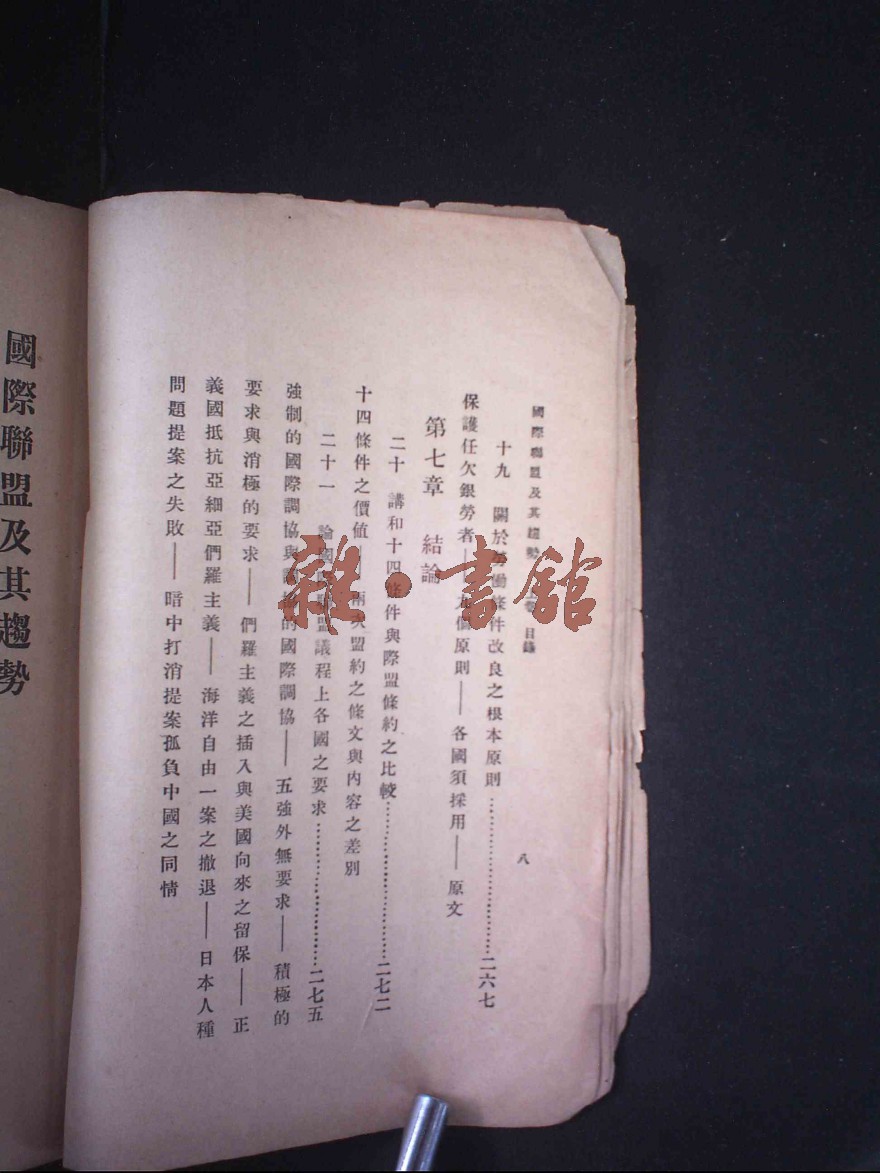 國際聯盟及其趨勢 卷 目錄
八
十九 關於勞働條件改良之根本原則……二六七
保護任欠銀勞者——九個原則——各國須採用——原文
第七章 結論
二十 講和十四條件與際盟條約之比較……二七二
十四條件之價値——兩次盟約之條文與內容之差別
二十一 論國際聯盟議程上各國之要求……二七五
強制的國際調協與 的國際調協——五強外無要求——積極的
要求與消極的要求——們羅主義之插入與美國向來之留保——正
義國抵抗亞細亞們羅主義——海洋自由一案之撤退——日本人種
問題提案之失敗——暗中打消提案孤負中國之同情
國際聯盟及其趨勢
雜·書館